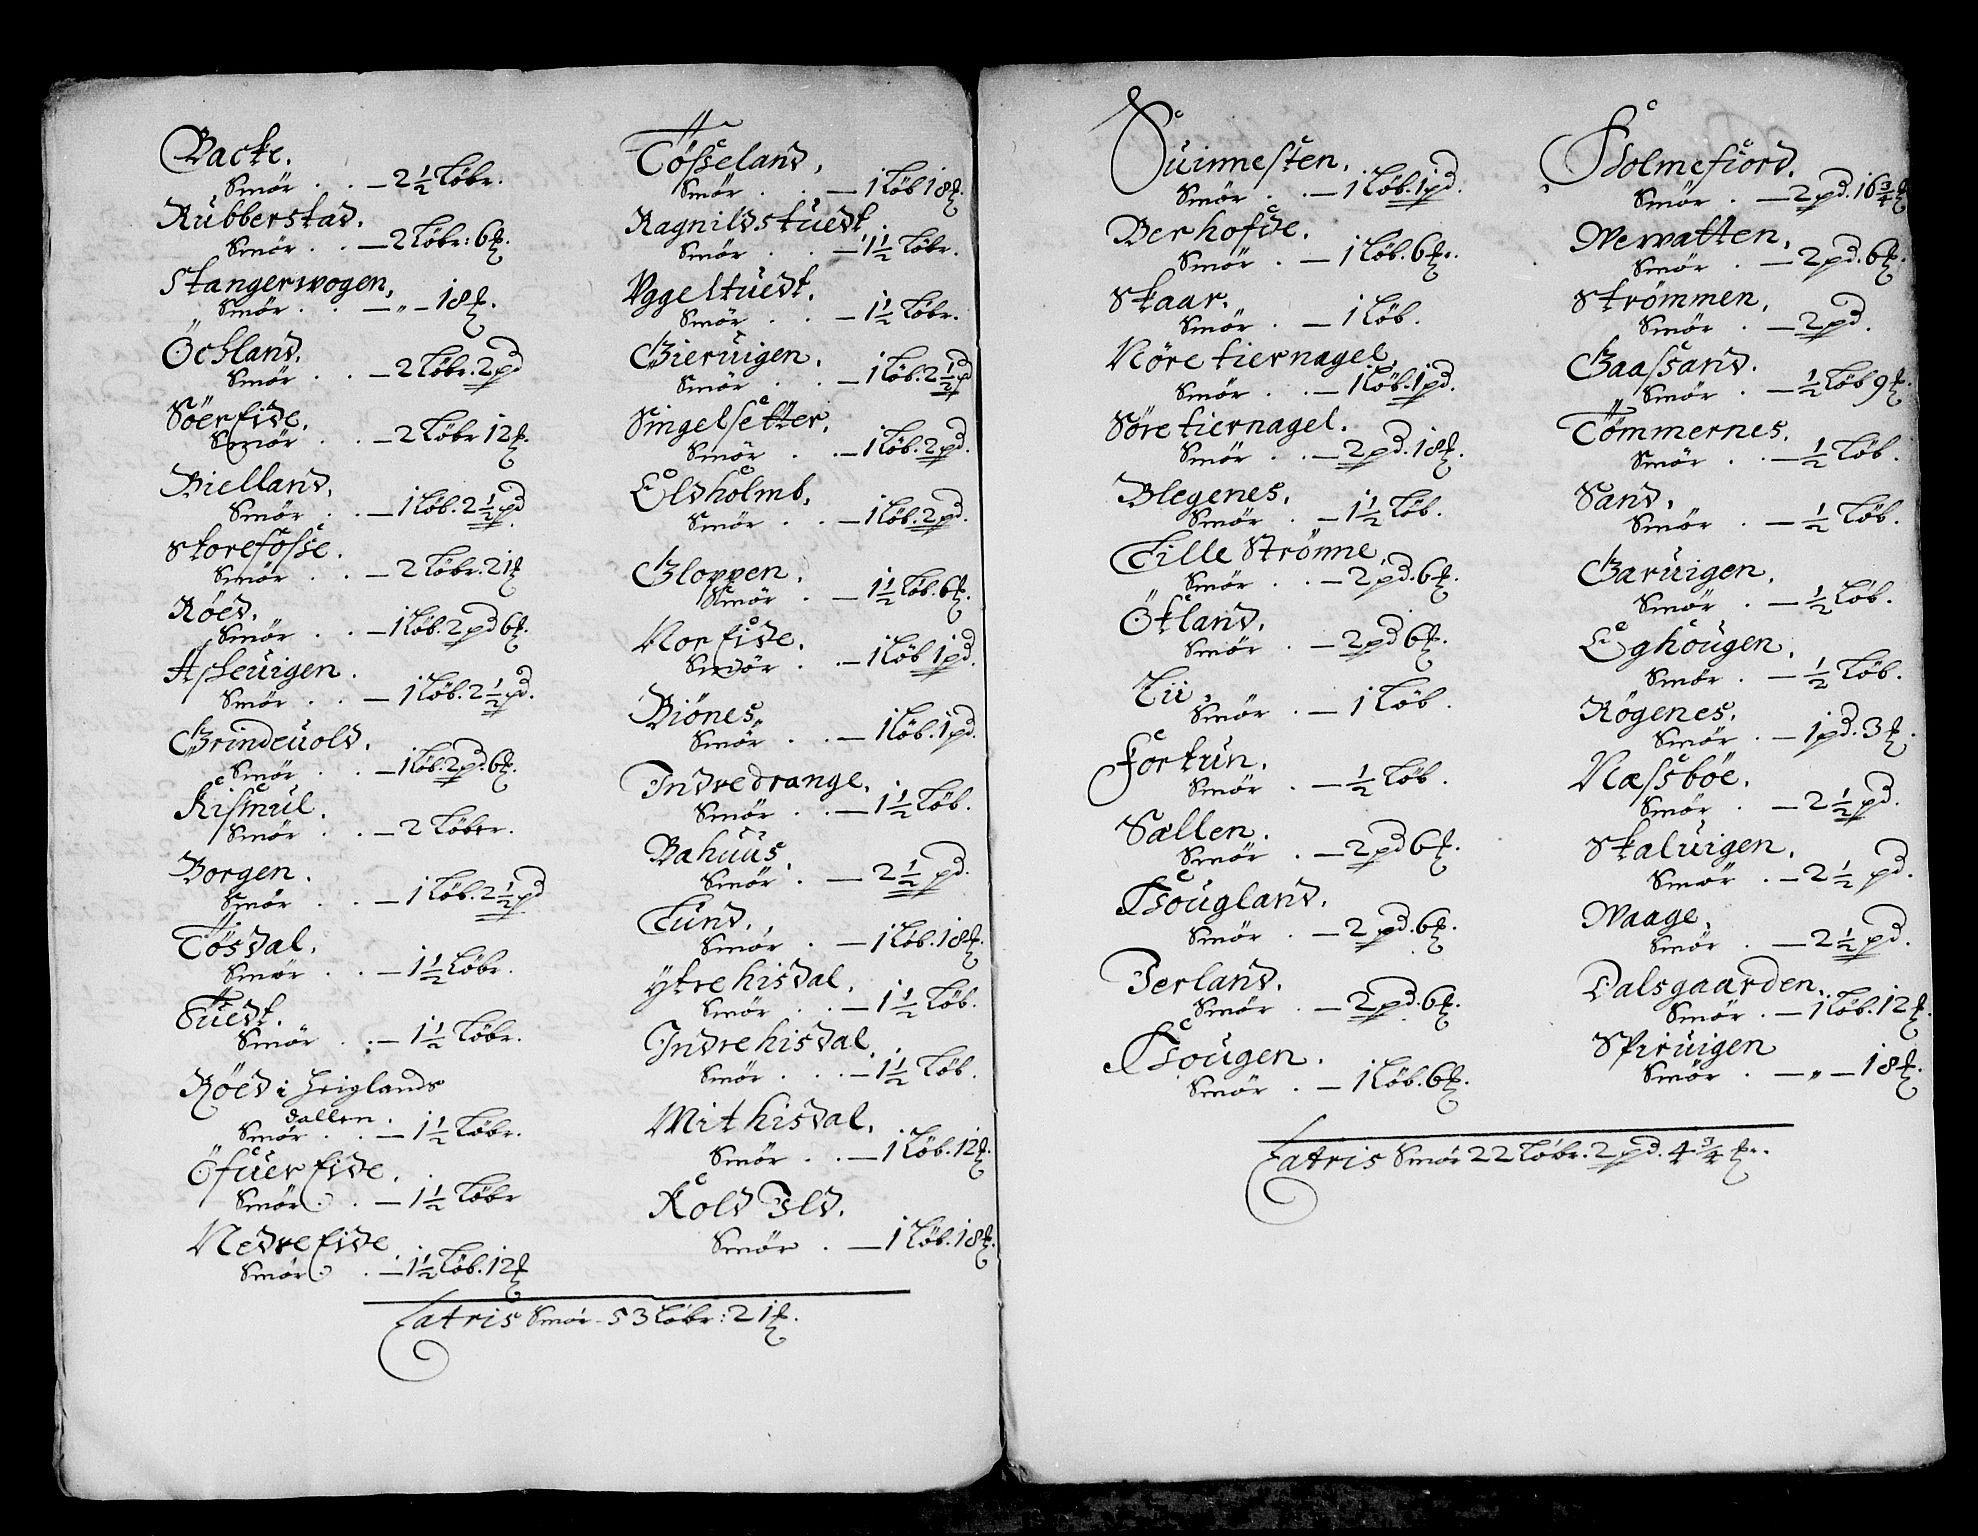 Backe.
Smör . . — 2½ Löbr.
Rubberstad.
Smör . . — 2 Löbr: 6 ℔.
Stangerwogen,
Smör . . — „ — 18 ℔.
Öchland.
Smör . . — 2 Löbr. 2 pd
Söer Eide.
Smör . . — 2 Löbr 12 ℔.
Bielland,
Smör . . — 1 Löb. 2½ pd
Storefosse.
Smör . . — 2 Löbr. 21 ℔
Röed.
Smör . . — 1 Löb. 2 pd 6 ℔.
Asseuigen.
Smör . . — 1 Löb. 2½ pd.
Grindeuold.
Smör . . — 1 Löb. 2 pd. 6 ℔.
Rismul.
Smör . . — 2 Löber.
Borgen.
Smör . . — 1 Löb. 2½ pd
Tösdal.
Smör . . — 1½ Löbr.
Tuedt.
Smör . . — 1½ Löbr.
Röed i Heiglands
dallen.
Smör . . — 1½ Löbr.
Öfuer Eide.
Smör . — 1½ Löbr
Nedre Eide
Smör . — 1½ Löb. 12 ℔
Tösseland,
Smör . . — 1 Löb 18 ℔.
Ragnildstuedt,
Smör . . — 1½ Löbr.
Yggeltuedt.
Smör . . — 1½ Löbr.
Gieruigen.
Smör . . — 1 Löb. 2½ pd
Singelsetter.
Smör . . — 1 Löb. 2 pd.
Eldholmb.
Smör . . — 1 Löb. 2 pd.
Gloppen.
Smör . — 1½ Löb. 6 ℔.
Nor Eide.
Smör . . — 1 Löb 1 pd.
Biönes,
Smör . . — 1 Löb. 1 pd.
Indredrange.
Smör . . — 1½ Löb.
Bahuus,
Smör . — 2½ pd.
Lund.
Smör . — 1 Löb. 18 ℔.
Ytre hisdal.
Smör . . — 1½ Löb.
Indre hisdal.
Smör . . — 1½ Löb.
Mit hisdal.
Smör . . — 1 Löb. 12 ℔.
Kold Ild.
Smör . — 1 Löb. 18 ℔.
Latris Smör - 53 Löbr: 21 ℔.
Suinnesten.
Smör . . — 1 Löb. 1 pd.
Berhofde.
Smör . — 1 Löb. 6 ℔.
Skaar.
Smör . — 1 Löb.
Nöre tiernagel.
Smör . . — 1 Löb. 1 pd.
Söre tiernagel.
Smör . . — 2 pd. 18 ℔.
Blegenes.
Smör . — 1½ Löb.
Lille Strömme.
Smör . . — 2 pd. 6 ℔.
Ötland.
Smör . — 2 pd 6 ℔.
Lii.
Smör . — 1 Löb.
Fortun.
Smör . — ½ Löb.
Sællen.
Smör . — 2 pd 6 ℔.
Hougland.
Smör . — 2 pd. 6 ℔.
Ierland.
Smör . — 2 pd. 6 ℔.
Hougen.
Smör . — 1 Löb. 6 ℔.
Holmefiord.
Smör . — 2 pd. 16¾ ℔
Wewatten.
Smör . — 2 pd. 6 ℔.
Strömmen,
Smör . — 2 pd.
Gaassand.
Smör . — ½ Löb 9 ℔.
Tömmernes.
Smör . . — ½ Löb.
Sand.
Smör . — ½ Löb.
Garuigen.
Smör . — ½ Löb.
Eghougen.
Smör . — ½ Löb.
Rögenes.
Smör . — 1 pd. 3 ℔.
Næssböe.
Smör . — 2½ pd.
Skaluigen.
Smör . — 2½ pd.
Waage.
Smör . — 2½ pd.
Dalsgaarden.
Smör . — 1 Löb. 12 ℔.
Spiruigen
Smör . — „ — 18 ℔.
Latris Smör 22 Löbr. 2 pd. 4¾ ℔.